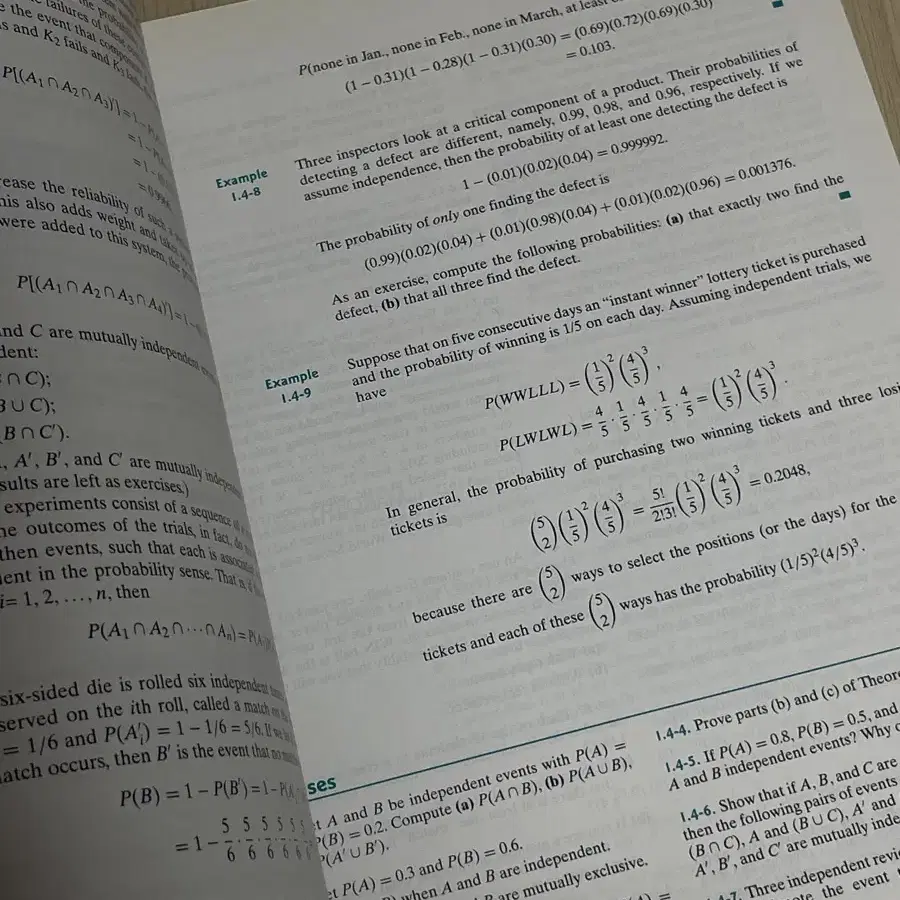 failures of these
e the event that
s and K₂ fails and K₃
P[(A₁ ∩ A₂ ∩ A₃)′] = 1 −
= 1 −
= 1 −
ease the reliability of such a
his also adds weight and
were added to this system, the
P[(A₁ ∩ A₂ ∩ A₃ ∩ A₄)′] = 1 −
nd C are mutually independent
dent:
∩ C);
B ∪ C);
(B ∩ C′).
, A′, B′, and C′ are mutually
sults are left as exercises.)
experiments consist of a sequence of
he outcomes of the trials, in fact, do
then events, such that each is
ent in the probability sense. That is,
i = 1, 2, …, n, then
P(A₁ ∩ A₂ ∩ ⋯ ∩ Aₙ) =
six-sided die is rolled six independent
served on the ith roll, called a match on
= 1/6 and P(A′ᵢ) = 1 − 1/6 = 5/6. If we
match occurs, then B′ is the event that no
P(B) = 1 − P(B′) = 1 −
= 1 − 5/6 · 5/6 · 5/6 · 5/6 · 5/6
P(none in Jan., none in Feb., none in March, at least
(1 − 0.31)(1 − 0.28)(1 − 0.31)(0.30) = (0.69)(0.72)(0.69)(0.30)
= 0.103.
Example
1.4-8
Three inspectors look at a critical component of a product. Their probabilities of
detecting a defect are different, namely, 0.99, 0.98, and 0.96, respectively. If we
assume independence, then the probability of at least one detecting the defect is
1 − (0.01)(0.02)(0.04) = 0.999992.
The probability of only one finding the defect is
(0.99)(0.02)(0.04) + (0.01)(0.98)(0.04) + (0.01)(0.02)(0.96) = 0.001376.
As an exercise, compute the following probabilities: (a) that exactly two find the
defect, (b) that all three find the defect.
Example
1.4-9
Suppose that on five consecutive days an “instant winner” lottery ticket is purchased
and the probability of winning is 1/5 on each day. Assuming independent trials, we
have
P(WWLLL) = (1/5)² (4/5)³,
P(LWLWL) = 4/5 · 1/5 · 4/5 · 1/5 · 4/5 = (1/5)² (4/5)³.
In general, the probability of purchasing two winning tickets and three losi
tickets is
(5 2) (1/5)² (4/5)³ = 5!/2!3! (1/5)² (4/5)³ = 0.2048,
because there are (5 2) ways to select the positions (or the days) for the
tickets and each of these (5 2) ways has the probability (1/5)²(4/5)³.
ses
t A and B be independent events with P(A) =
P(B) = 0.2. Compute (a) P(A ∩ B), (b) P(A ∪ B),
P(A′ ∪ B′).
et P(A) = 0.3 and P(B) = 0.6.
when A and B are independent.
B are mutually exclusive.
1.4-4. Prove parts (b) and (c) of Theore
1.4-5. If P(A) = 0.8, P(B) = 0.5, and
A and B independent events? Why o
1.4-6. Show that if A, B, and C are
then the following pairs of events
(B ∩ C), A and (B ∪ C), A′ and
A′, B′, and C′ are mutually inde
Three independent revie
the event